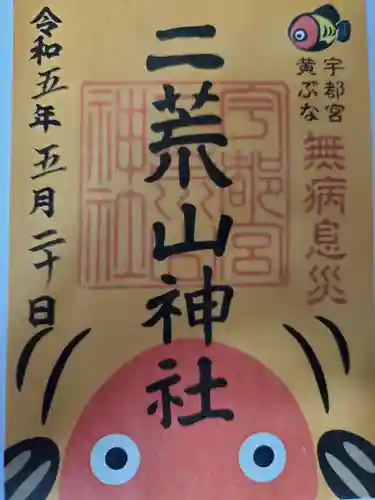 宇都宮
黄ぶな
無病息災
二荒山神社
宇都宮
二荒山
神社
令和五年五月二十日